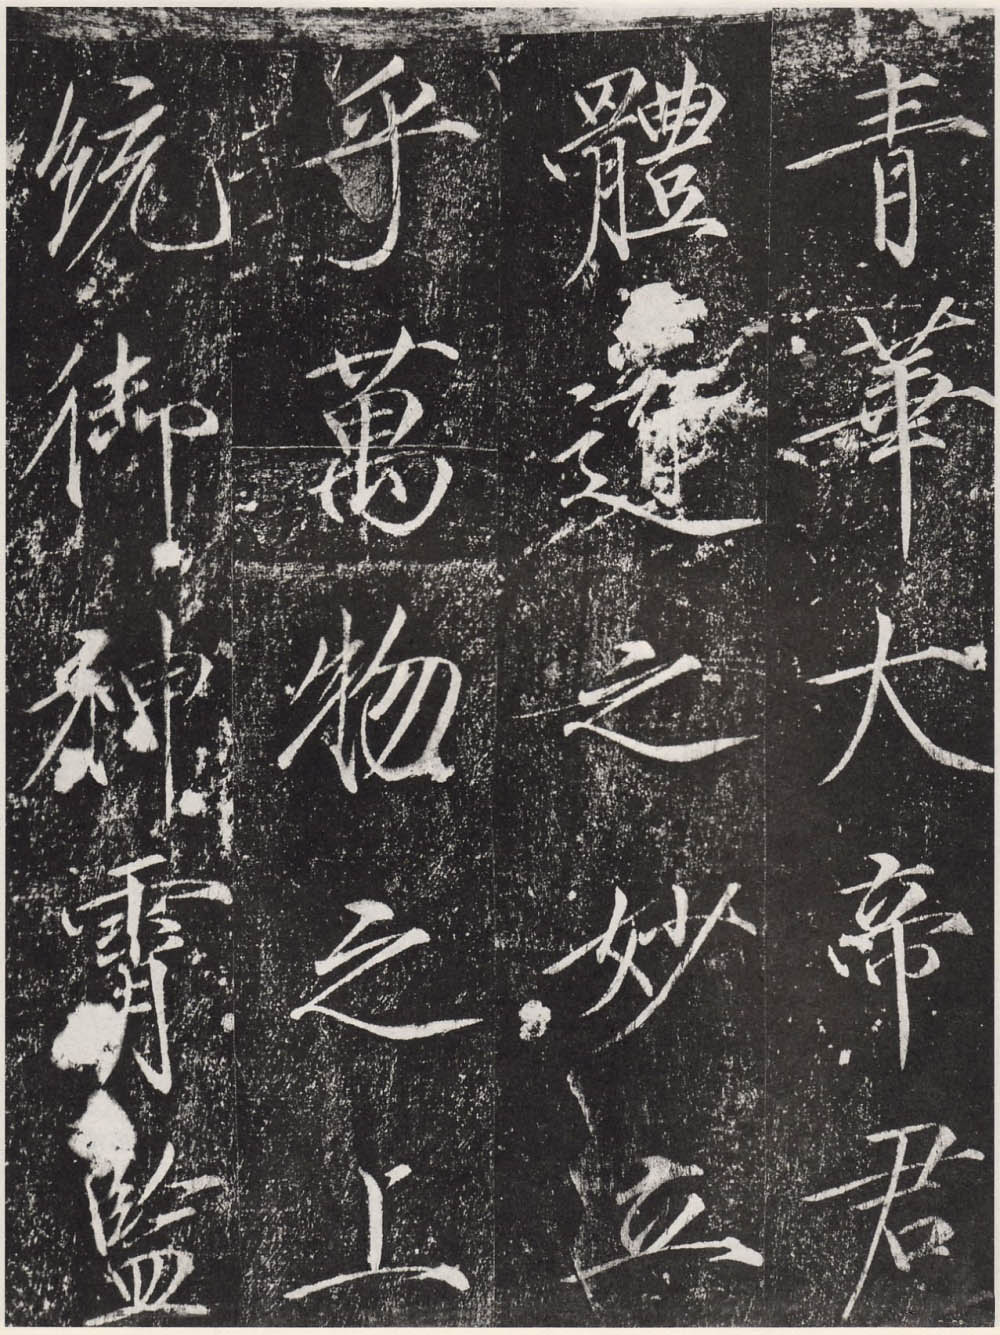 青華大帝君
體道之妙立
乎萬物之上
統御神霄監